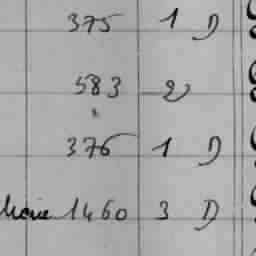 375 1 D
583 2
376 1 D
1460 3 D